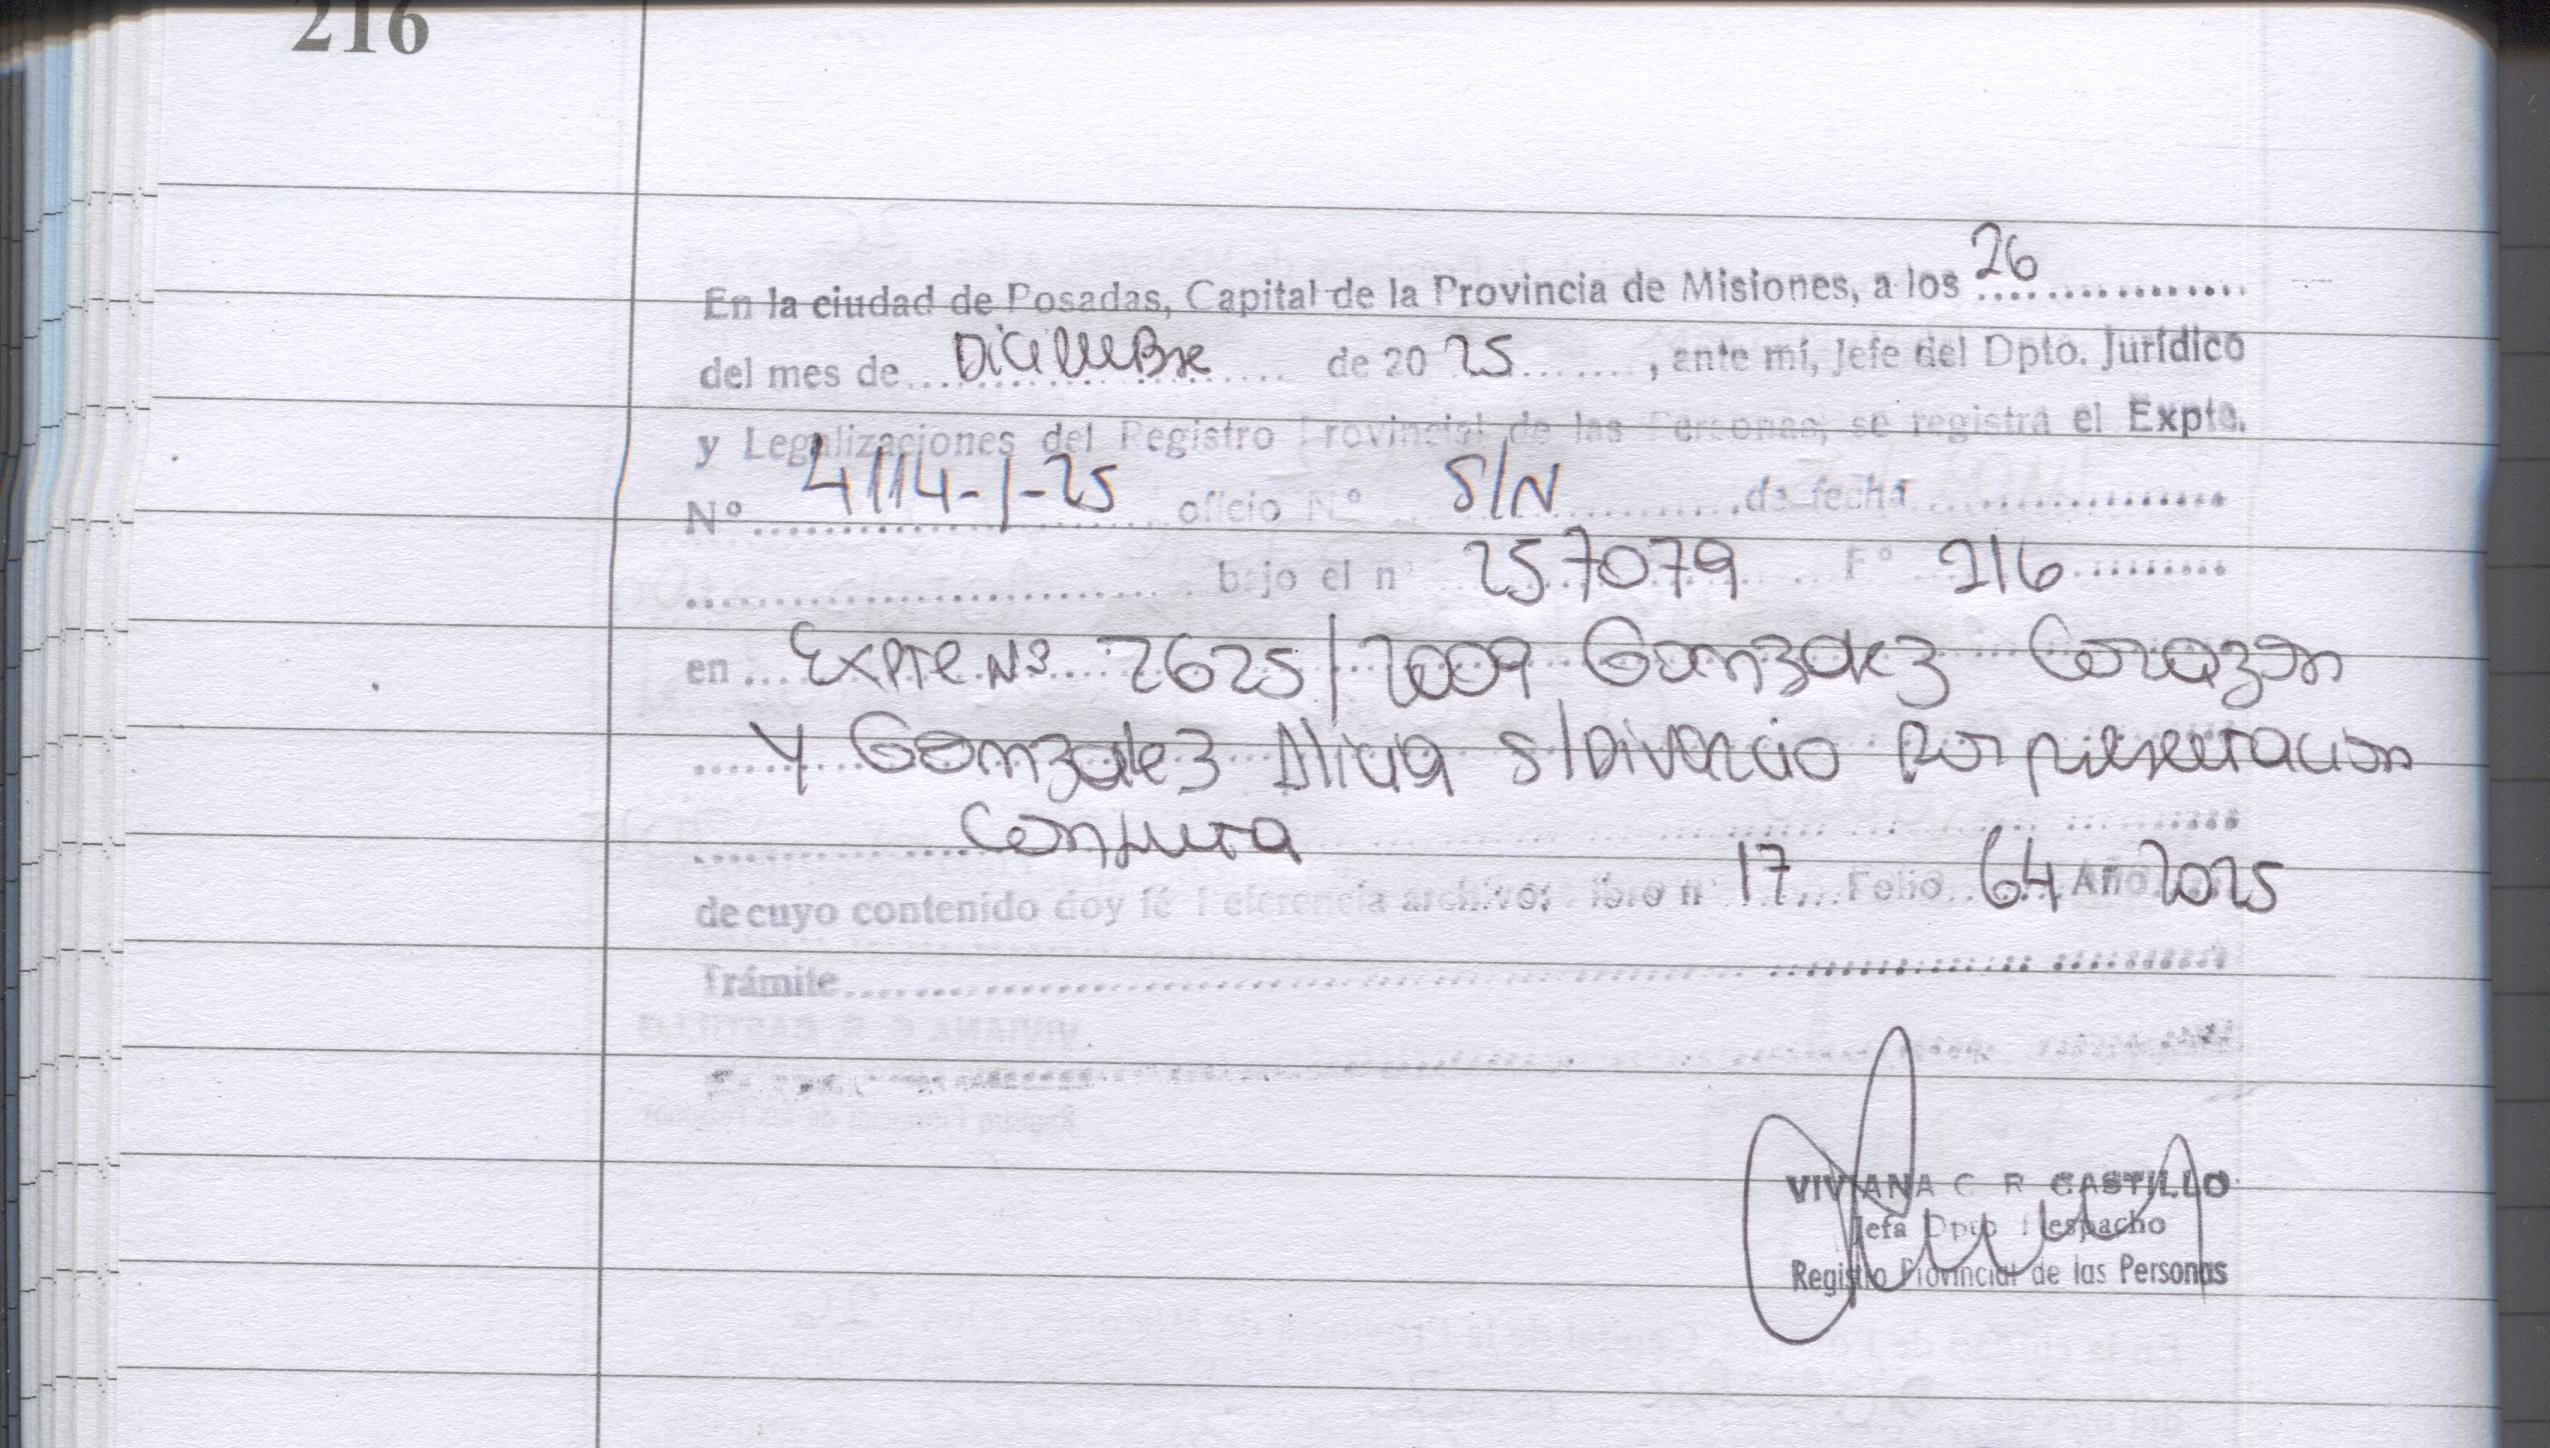 216
En la ciudad de Posadas, Capital de la Provincia de Misiones, a los 26
del mes de Diciembre de 20 25, ante mí, Jefe del Dpto. Jurídico
y Legalizaciones del Registro Provincial de las Personas, se registra el Expte.
Nº 4114-1-25 oficio Nº S/N de fecha
bajo el nº 257079 Fº 216
en Expte Nº 2625/2009 Gonzalez Corazon
y Gonzalez Alicia s/Divorcio por presentacion
Conjunta
de cuyo contenido doy fé Referencia archivo: Libro nº 17 Folio 64 Año 2025
Trámite
VIVIANA C R CASTILLO
Jefa Dpto Despacho
Registro Provincial de las Personas